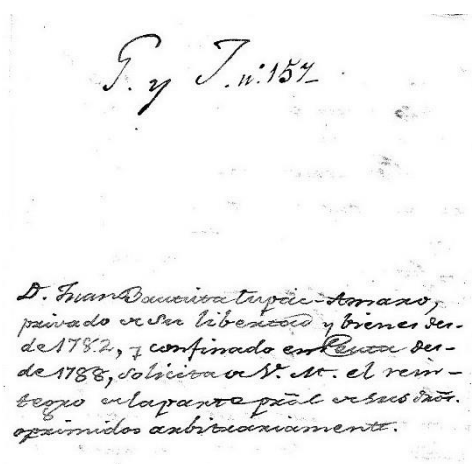 G. y J. n.º 157
D. Juan Bautista Tupac-Amaro,
privado de su libertad y bienes des-
de 1782, y confinado en Ceuta des-
de 1788, solicita de V. M. el rein-
tegro de la parte pral de sus dros.
oprimidos arbitrariamente.